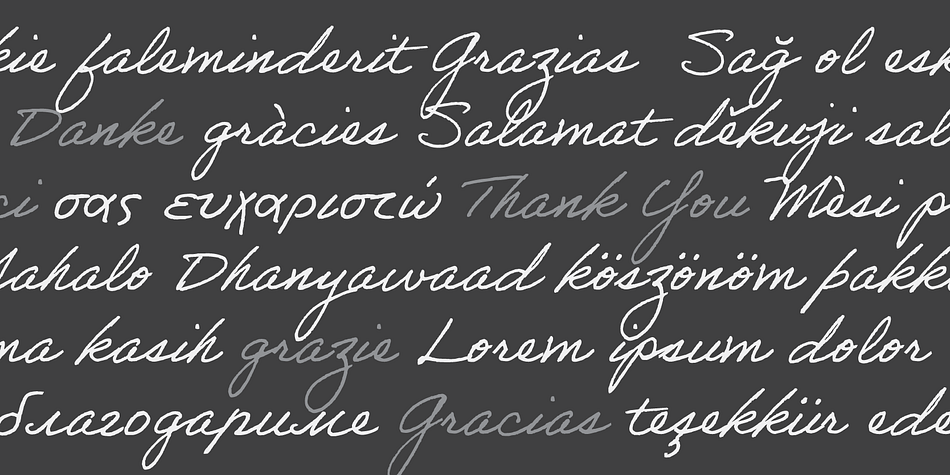 kie faleminderit Grazias Sağ ol esk
Danke gràcies Salamat děkuji sal
ci σας ευχαριστώ Thank You Mèsi p
Mahalo Dhanyawaad köszönöm þakk
ma kasih grazie Lorem ipsum dolor
благодариме Gracias teşekkür ede